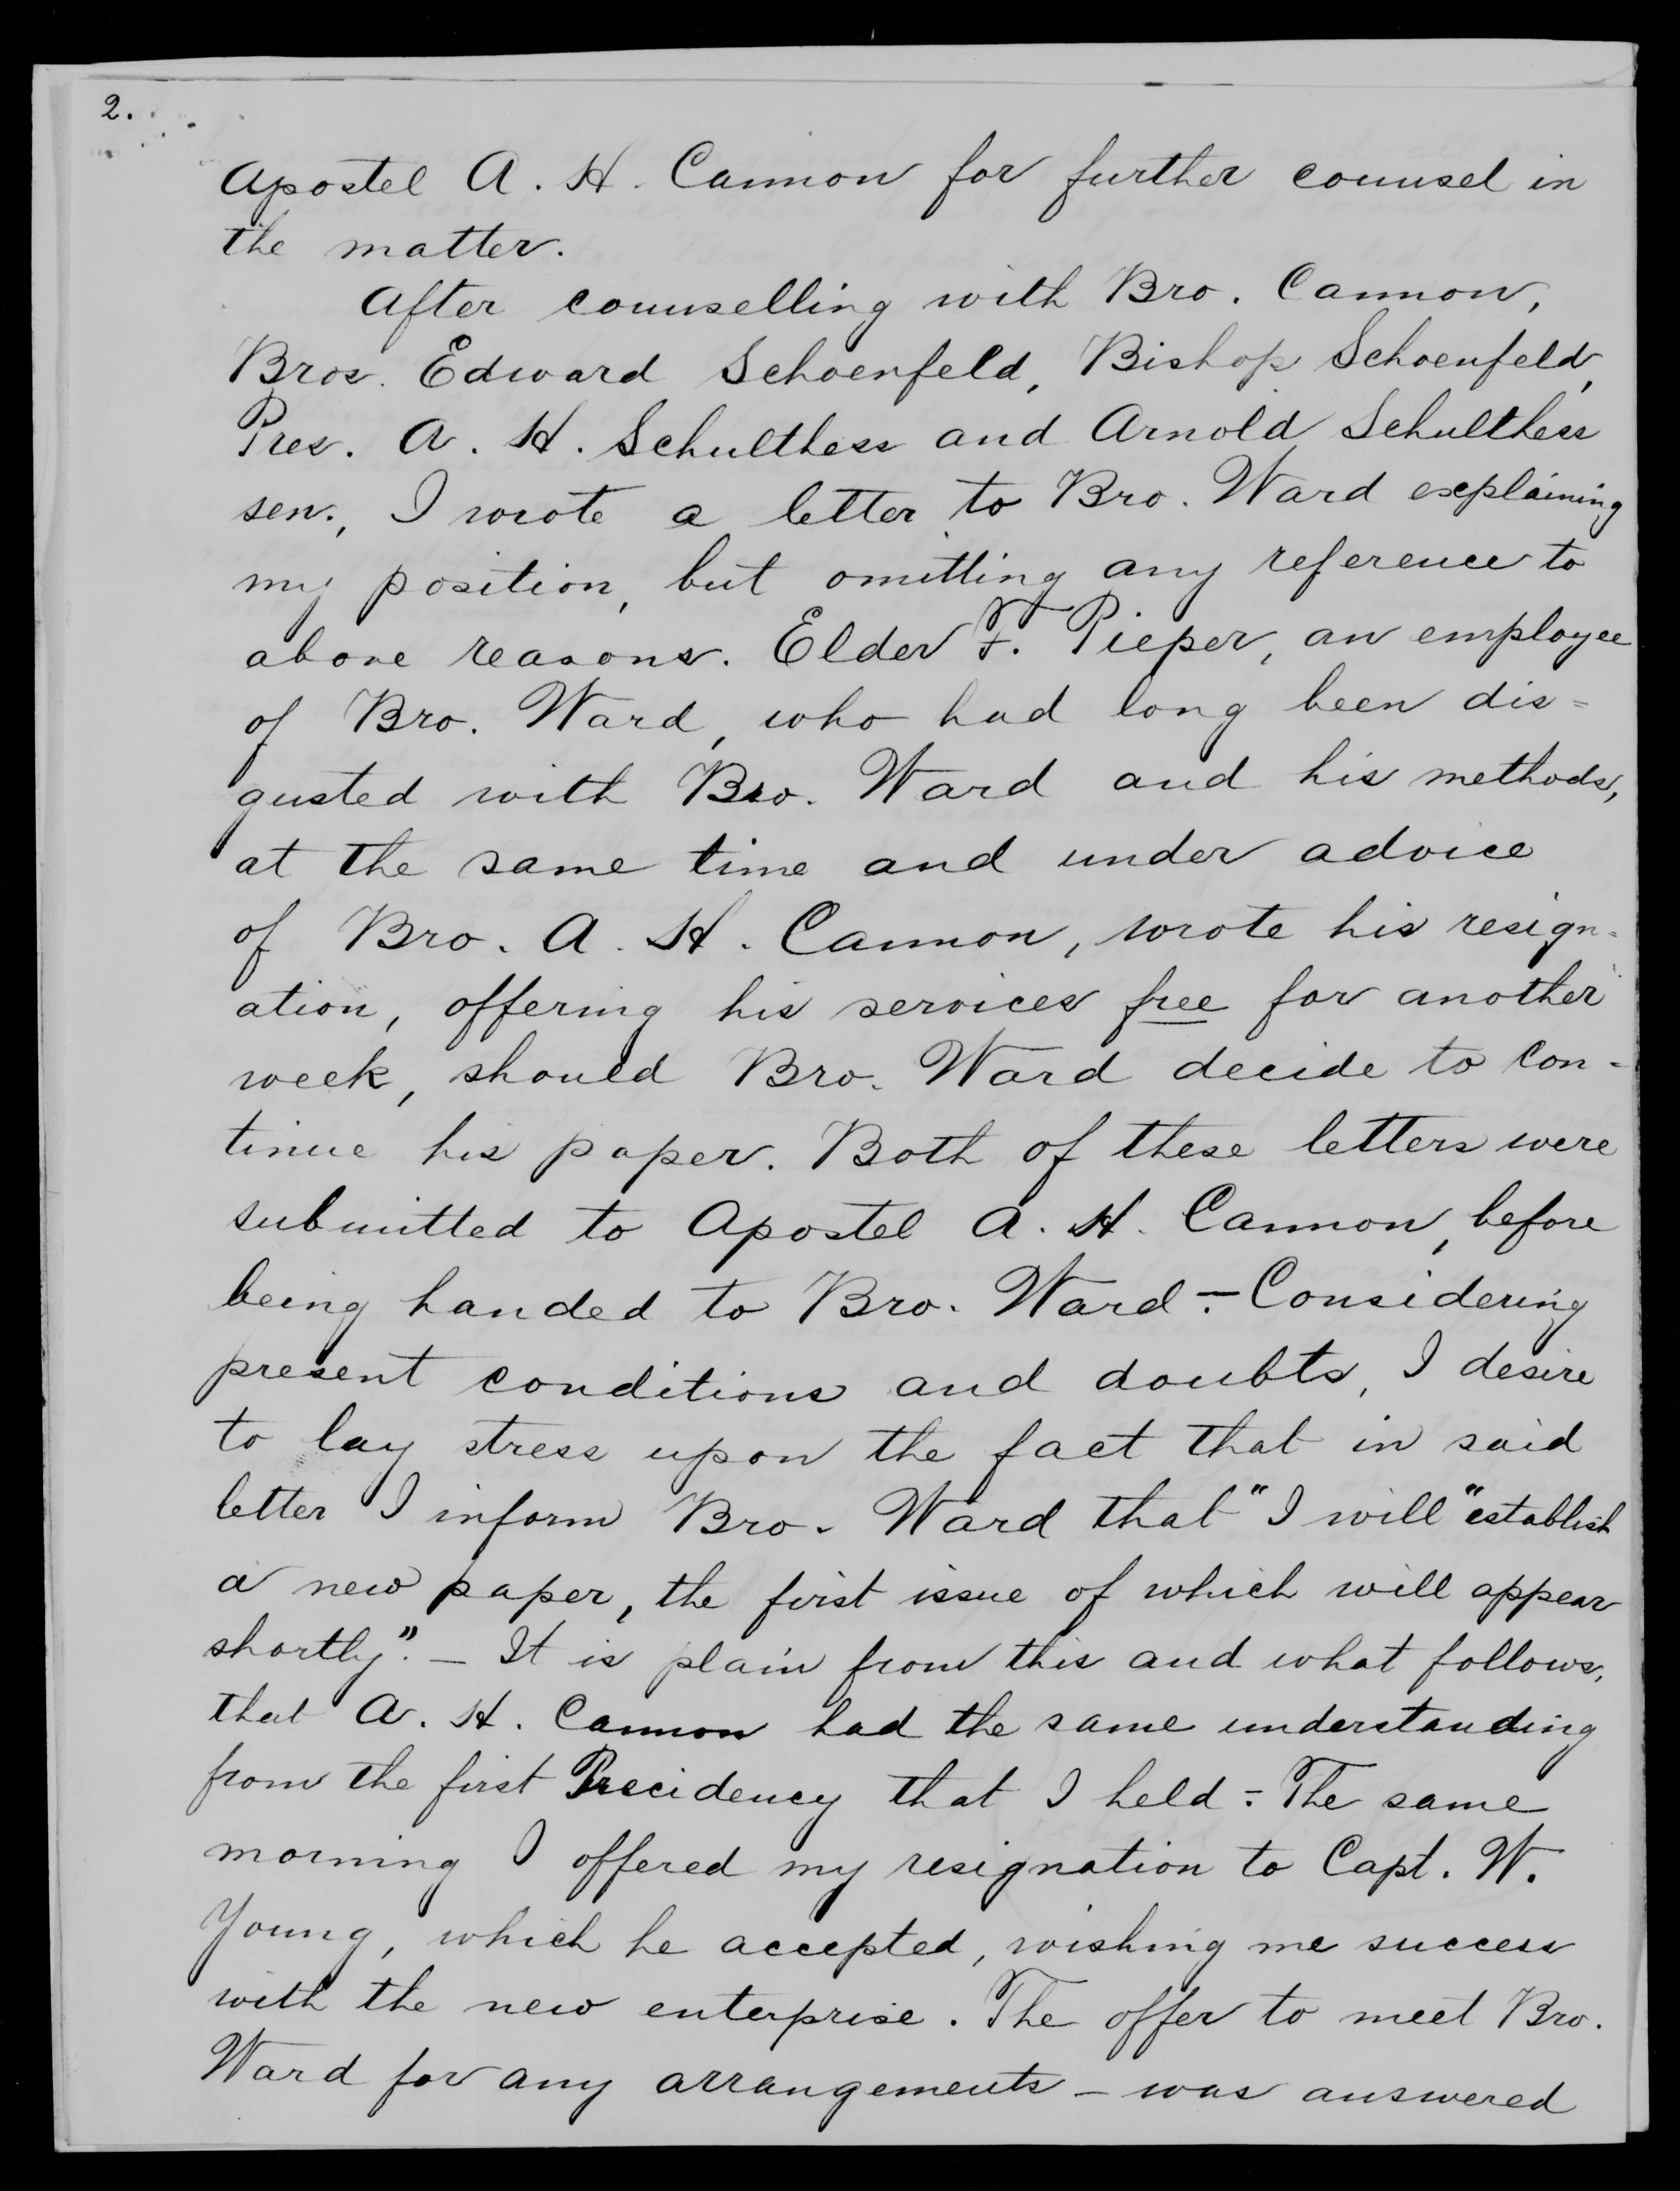 2.
Apostel A. H. Cannon for further counsel in
the matter.
After counselling with Bro. Cannon,
Bros. Edward Schoenfeld, Bishop Schoenfeld,
Pres. A. H. Schulthess and Arnold Schulthess
sen., I wrote a letter to Bro. Ward explaining
my position, but omitting any reference to
above reasons. Elder F. Pieper, an employee
of Bro. Ward, who had long been dis=
gusted with Bro. Ward and his methods,
at the same time and under advice
of Bro. A. H. Cannon, wrote his resign=
ation, offering his services free for another
week, should Bro. Ward decide to con=
tinue his paper. Both of these letters were
submitted to Apostel A. H. Cannon, before
being handed to Bro. Ward.— Considering
present conditions and doubts, I desire
to lay stress upon the fact that in said
letter I inform Bro. Ward that "I will "establish
a new paper, the first issue of which will appear
shortly". — It is plain from this and what follows,
that A. H. Cannon had the same understanding
from the first Precidency that I held.— The same
morning I offered my resignation to Capt. W.
Young, which he accepted, wishing me success
with the new enterprise. The offer to meet Bro.
Ward for any arrangements — was answered